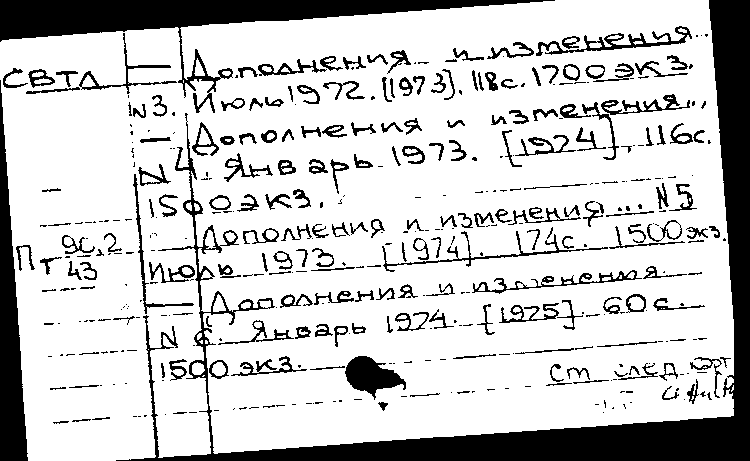 СВТЛ — Дополнения и изменения..
N3. Июль 1972. [1973]. 118с. 1700 экз.
— Дополнения и изменения...
N 4. Январь 1973. [1974], 116с.
1500 экз.
— Дополнения и изменения... N 5
Пт 90.2/43
Июль 1973. [1974]. 174с. 1500 экз.
— Дополнения и изменения.
N 6. Январь 1974. [1975]. 60 с.
1500 экз.
Ст след карт